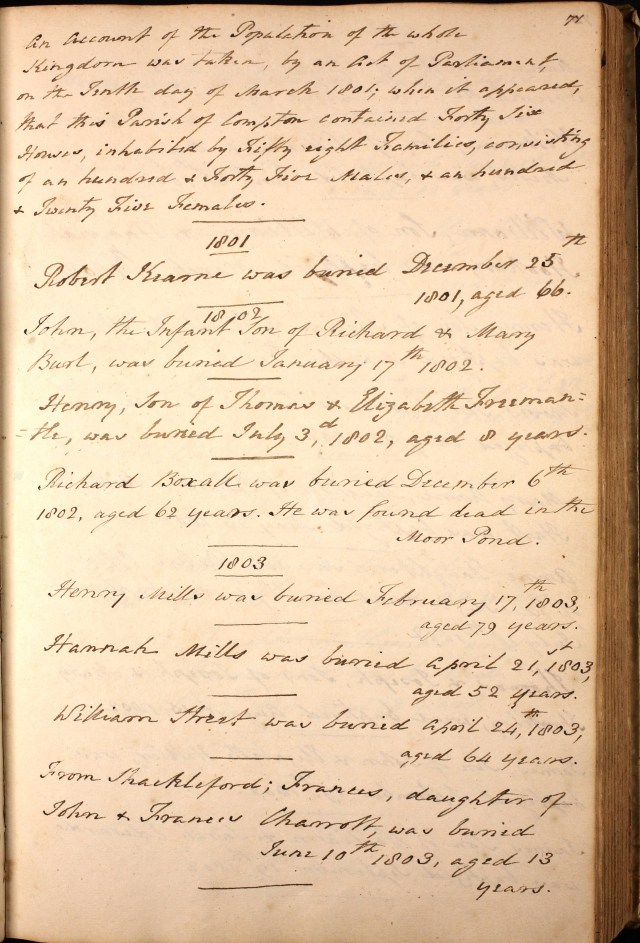 71
An Account of the Population of the whole
Kingdom was taken, by an Act of Parliament,
on the Tenth day of March 1801; when it appeared,
that this Parish of Compton contained Forty Six
Houses, inhabited by Fifty eight Families, consisting
of an hundred & Forty Five Males, & an hundred
& Twenty Five Females.
1801
Robert Kearne was buried December 25th
1801, aged 66.
1802
John, the Infant Son of Richard & Mary
Burt, was buried January 17th 1802.
Henry, Son of Thomas & Elizabeth Freeman=
=tle, was buried July 3d, 1802, aged 8 years.
Richard Boxall was buried December 6th
1802, aged 62 years. He was found dead in the
Moor Pond.
1803
Henry Mills was buried February 17th, 1803,
aged 79 years.
Hannah Mills was buried April 21st, 1803,
aged 52 years.
William Street was buried April 24th, 1803,
aged 64 years.
From Shackleford; Frances, daughter of
John & Frances Charrott, was buried
June 10th 1803, aged 13
years.